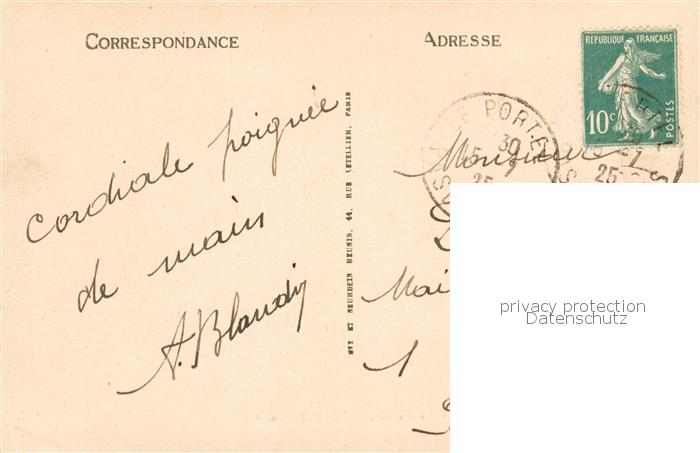 CORRESPONDANCE
ADRESSE
RÉPUBLIQUE FRANÇAISE
10c
POSTES
PORTE
30
25
25
Cordiale poignée
de main
A. Blandin
LÉVY ET NEURDEIN RÉUNIS, 44, RUE LETELLIER, PARIS
Monsieur
Mai
1
privacy protection
Datenschutz